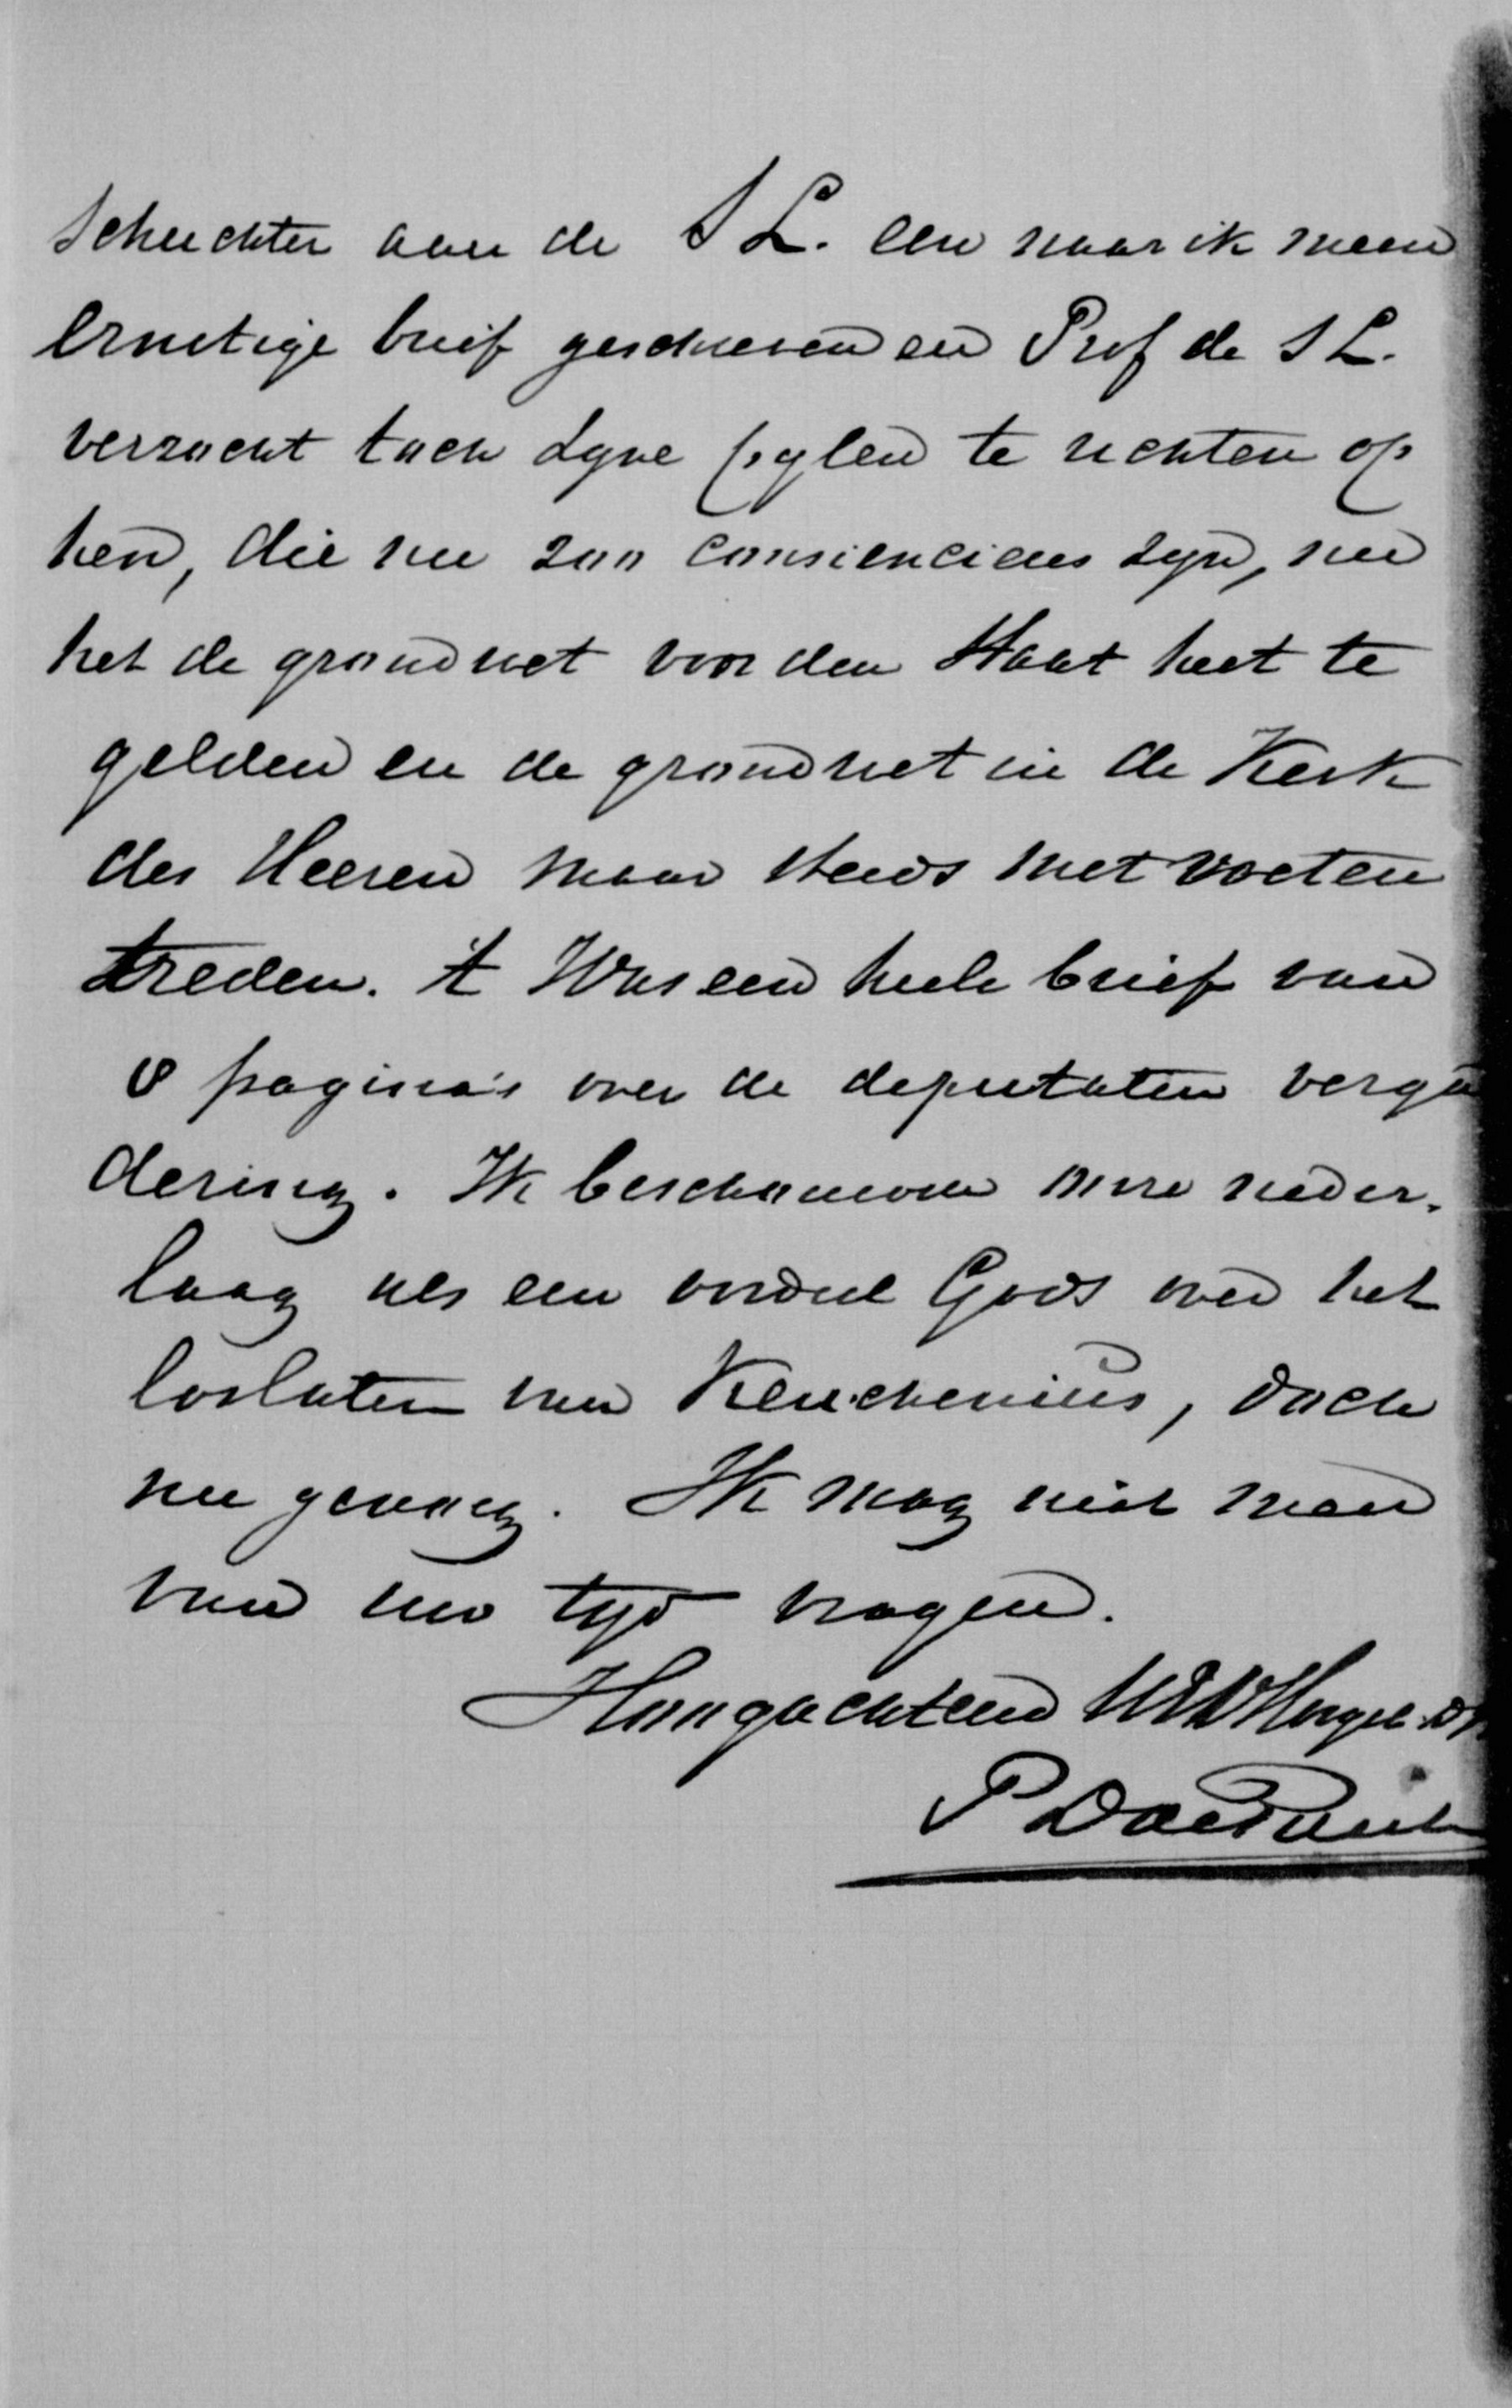 Schuchter aan de S L. een naar ik meen
ernstige brief geschreven en Prof de S L.
verzocht toch zyne pylen te richten op
hen, die nu zoo consiencieus zyn, nu
het de grondwet voor den Staat heet te
gelden en de grondwet in de Kerk
des Heeren maar steeds met voeten
treden. 't Was een heele brief van
8 pagina's over de deputaten verga
dering. Ik beschouwde onze neder-
laag als een oordeel Gods over het
loslaten van Keuchenius, doch
nu genoeg. Ik mag niet meer
van uw tyd vragen.
Hoogachtend
P